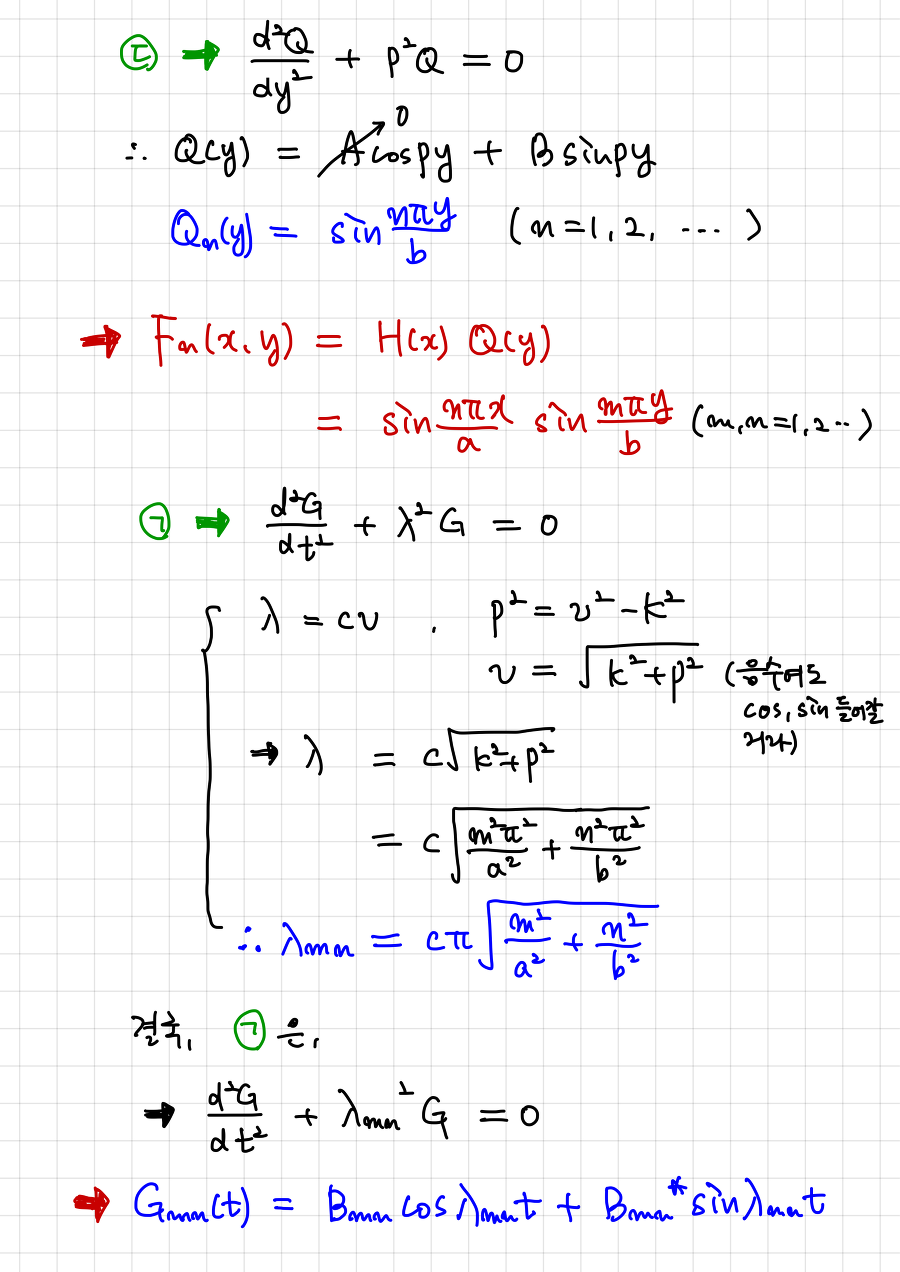 ㄷ ➡ d²Q/dy² + p²Q = 0
∴ Q(y) = A cospy + B sinpy
0
Qn(y) = sin nπy/b (n=1, 2, ⋯)
➡ Fn(x, y) = H(x) Q(y)
= sin nπx/a sin mπy/b (m,n=1,2⋯)
ㄱ ➡ d²G/dt² + λ²G = 0
λ = cν , p² = ν² − k²
ν = √(k²+p²) (음수여도
cos, sin 들어갈
거라)
➡ λ = c√(k²+p²)
= c√(m²π²/a² + n²π²/b²)
∴ λmn = cπ√(m²/a² + n²/b²)
결국, ㄱ은,
➡ d²G/dt² + λmn² G = 0
➡ Gmn(t) = Bmn cos λmn t + Bmn* sin λmn t